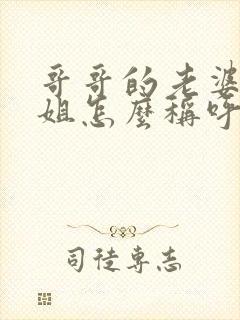 哥哥的老婆
姐怎麼稱呼
司徒專志